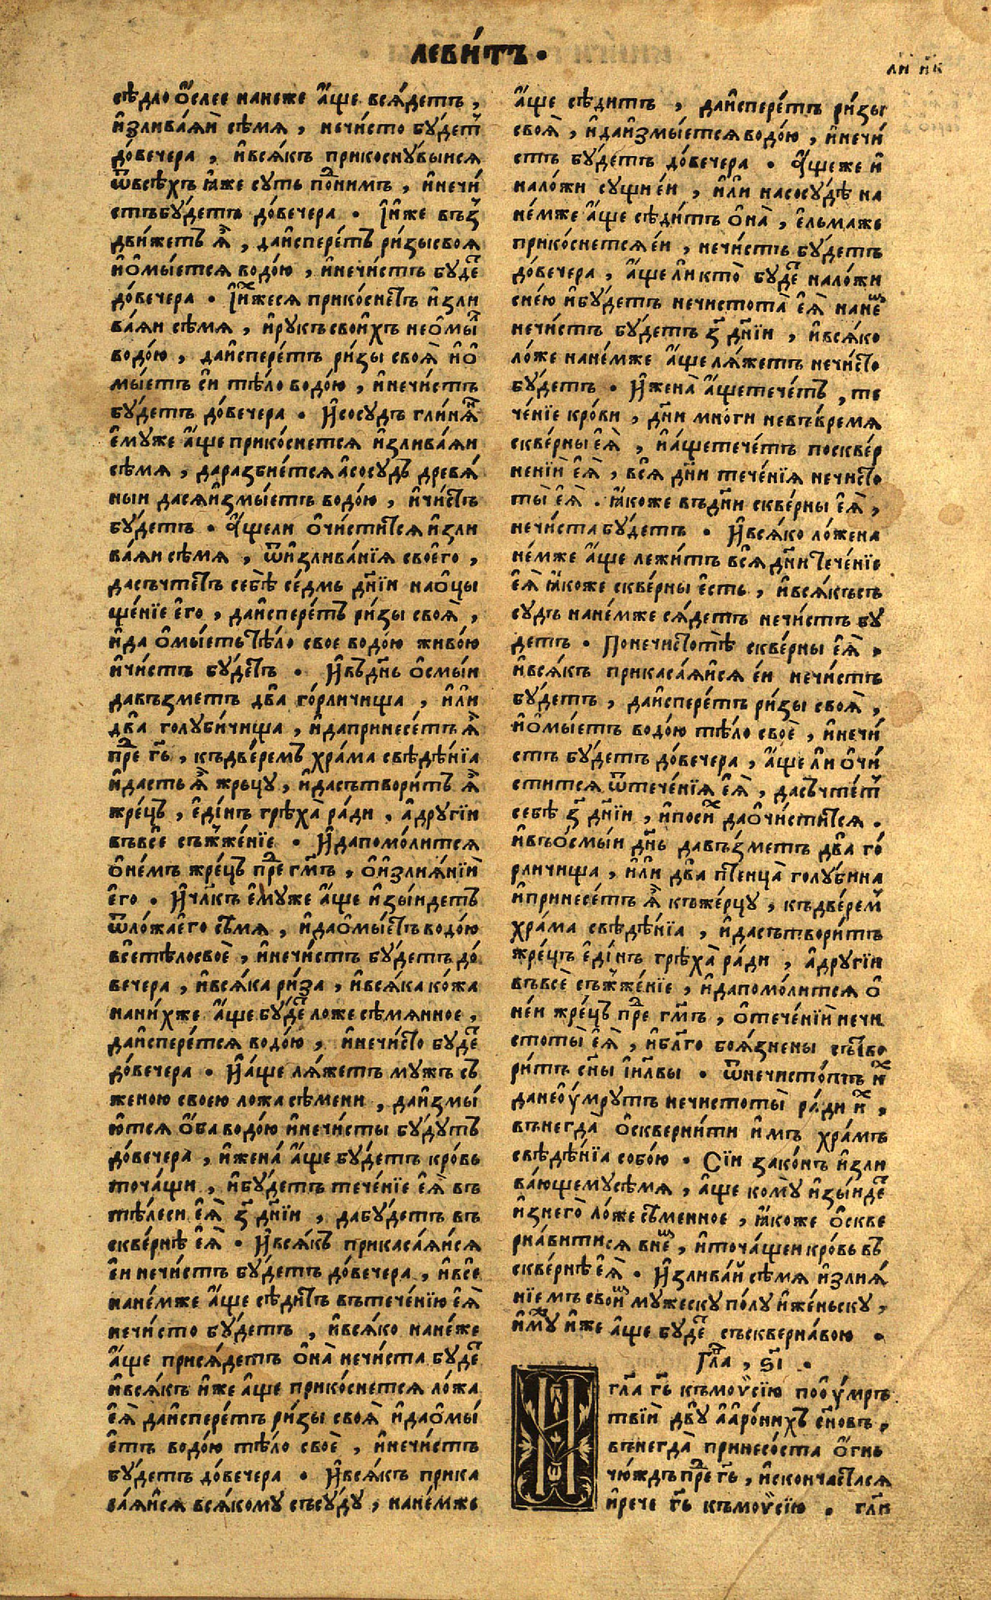 левı́тъ ·
сѣ́дло о҆́слее нанеже а҆́ще вся́детъ ,
и҆злива́яй сѣ́мя , нечи́сто бу́деⷮ
до́вечера , и҆вся́къ прикоснꙋ́выися
ѿвсѣ́хъ ꙗ҆́же сꙋть поⷣни́мъ , и҆нечи́
стъбу́детъ до́вечера · І҆и҆́же въꙁ
дви́жетъ ѧ҆̀ , даи҆спере́тъ ри́зысвоя
и҆о҆мы́ется водо́ю , и҆нечи́стъ бу́деⷮ
до́вечера · І҆ни́жеся прико́снеⷮъ и҆зли
ва́яи сѣ́мя , и҆рꙋкъ свои́хъ нео҆мы́ⷮ
водо́ю , даи҆спере́тъ ри́зы своя̀ и҆о҆
мы́етъ си тѣ́ло водо́ю , и҆нечи́стъ
бу́детъ до́вечера · И҆сосу́дъ гли́няⷩ
е҆му́же а҆́ще прикоснется и҆злива́яи
сѣ́мя , даразбие́тся а҆сосу́дъ древя́
ныи дасяи҆змы́етъ водо́ю , и҆чи́сⷮъ
бу́детъ · А҆́щели о҆чи́ститⷭся и҆зли
ва́яи сѣ́мя , ѿи҆злива́нїя своего̀ ,
дасъчтеⷮъ себѣ̀ се́дмь дн҃їи нао҆цы
ще́нїе е҆го̀ , даи҆спере́тъ ри́зы своя̀ ,
и҆да о҆мы́етьтѣ́ло свое водо́ю живо́ю
и҆чи́стъ бу́деⷮъ · И҆въдн҃ь о҆смы́и
давъзметъ два̀ го́рличища , и҆лѝ
два̀ голуби́чища , и҆дапринесе́тъ ѧ҆̀
преⷣ гм҃ъ , къдве́ремъ хра́ма свѣдѣ́нїа
и҆дастъ ѧ҆̀ жрьцу̀ , и҆дасътвори́тъ ѧ҆̀
жре́цъ , е҆ди́нъ грѣха̀ ра́ди , а҆другі́и
въвсѐ съжже́нїе · И҆дапомо́лится
о҆не́мъ жре́цъ преⷣ гм҃ъ , о҆и҆злия́нїи
е҆го̀ · И҆чл҃къ е҆мꙋже а҆́ще и҆зы́идетъ
ѿло́жаего̀ сѣ́мя , и҆дао҆мы́еⷮъ водо́ю
всетѣ́лосвоѐ , и҆нечи́стъ бу́детъ до́
вечера , и҆вся́ка ри́за , и҆вся́ка ко́жа
нани́хже а҆́ще бу́деⷮ ложе сѣ́мянное ,
даи҆спере́тся водо́ю , и҆нечи́сⷮо бу́деⷮ
до́вечера · И҆а҆́ще ля́жетъ мужъ съ
женою своею ложа сѣ́мени , даи҆змы́
ю҆тся о҆́ба водо́ю и҆нечи́сты бу́дутъ
до́вечера , и҆жена̀ а҆́ще бу́детъ кро́вь
точа́щи , и҆бу́детъ тече́нїе е҆я̀ въ
тѣ́леси е҆я̀ з҃ дн҃їи , дабу́детъ въ
скве́рнѣ е҆я̀ · И҆вся́къ прикаса́яися
е҆и нечи́стъ бу́детъ до́вечера , и҆всѐ
нане́мже а҆́ще сѣ́диⷮъ вътече́нїю е҆я̀
нечи́сто бу́детъ , и҆вся́ко нане́же
а҆́ще прися́детъ о҆на̀ нечи́ста бу́деⷮ
и҆вся́къ и҆́же а҆́ще прико́снется ло́жа
е҆я̀ даи҆спере́тъ ри́зы своя̀ и҆дао҆мы́
е҆тъ водо́ю тѣ́ло своѐ , и҆нечи́стъ
бу́детъ до́вечера · И҆вся́къ прика
са́яися вся́кому съсу́ду , нане́мже
а҆́ще сѣ́дитъ , даи҆спере́тъ ри́зы
своя̀ , и҆даи҆змы́ется водо́ю , и҆нечи́
стъ бу́детъ до́вечера · А҆́щеже и҆
нало́жи су́щи е́и , и҆лѝ насосу́дѣ на
не́мже а҆́ще сѣ́дитъ о҆на̀ , е҆льма́же
прико́снется е́и , нечи́стъ бу́детъ
до́вечера , а҆́ще ли кто̀ бу́деⷮ нало́жи
сне́ю и҆бу́детъ нечистота̀ е҆я̀ нане́ⷨ
нечи́стъ бу́детъ з҃ дн҃їи , и҆вся́ко
ло́же нане́мже а҆́ще ля́жетъ нечи́сⷮо
бу́детъ · И҆жена̀ а҆́щетече́тъ , те
че́нїе кро́ви , дн҃и мно́ги невъвремя
скве́рны е҆я̀ , и҆а҆́щетече́тъ посквер
не́нїи е҆я̀ , вся̀ дн҃и тече́нїя нечи́сⷮо
ты̀ е҆я̀ · ꙗ҆́коже въдн҃и скве́рны е҆я̀ ,
нечи́ста бу́детъ · И҆вся́ко ло́жена
не́мже а҆́ще лежи́тъ вся̀ дн҃и тече́нїе
е҆я̀ ꙗ҆́коже скве́рны е҆сть , и҆вся́къ съ
су́дъ нане́мже ся́детъ нечи́стъ бу́
детъ · Понечи́сⷮотѣ̀ скве́рны е҆я̀ ,
и҆вся́къ прикаса́яися е́и нечи́стъ
бу́детъ , даи҆спере́тъ ри́зы своя̀ ,
и҆о҆мы́етъ водо́ю тѣ́ло своѐ , и҆нечи́
стъ бу́детъ до́вечера , а҆́ще ли о҆чи́
стится ѿтече́нїя е҆я̀ , дасъчте́тъ
себѣ̀ з҃ дн҃їи , и҆посиⷯ дао҆чи́ститⷭся .
и҆въо҆смы́и дн҃ь давъ́зметъ два̀ го́
рличища , и҆лѝ два̀ птенца̀ голуби́на
и҆принесе́тъ ѧ҆̀ къже́рцу , къдве́реⷨ
хра́ма свѣдѣ́нїа , и҆дасътвори́тъ
жре́цъ е҆ди́нъ грѣха̀ ра́ди , а҆други́и
въвсѐ съжже́нїе , и҆дапомо́лится о҆
не́и жре́цъ преⷣ гм҃ъ , о҆тече́нїи нечи
стоты̀ е҆я̀ , и҆бл҃го боя́знены сътво
ри́тъ сн҃ы і҆и҃лвы · ѿнечисто́тъ иⷯ
данеу҆́мрутъ нечистоты̀ ра́ди иⷯ ,
въне́гда о҆скверни́ти и҆́мъ хра́мъ
свѣдѣ́нїа собо́ю · Сі́и зако́нъ и҆зли
ва́ющемусѣ́мя , а҆́ще кому̀ и҆зы́идеⷮ
и҆знего̀ ло́же сѣменное , ꙗ҆́коже о҆скве
рня́витися внеⷨ , и҆точа́щеи кро́вь въ
скве́рнѣ е҆я̀ · И҆злива́й сѣ́мя и҆злия́
нїемъ свои́ⷨ му́жеску по́лу и҆же́ньску ,
и҆мꙋⷤ и҆́же а҆́ще бу́деⷮ съсквернавою ·
Гла҃ , ѕ҃і ·
гл҃а гь҃ къмоѵ̈се́їю поу҆́мръ
тві́и двꙋ̀ а҆аро́нихъ сн҃овъ ,
вънегда̀ принесо́ста о҆́гнь
чю́ждъ преⷣ гм҃ъ , и҆сконча́стася
и҆рече гь҃ къмоѵ̈се́їю , гл҃и